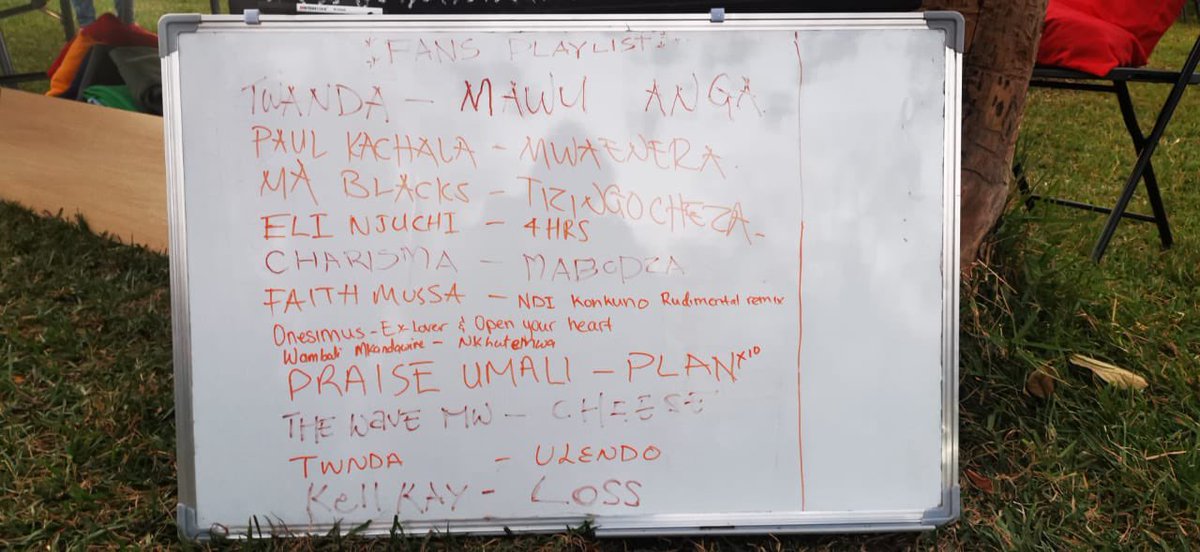 FANS PLAYLIST
TWANDA - MAWU ANGA
PAUL KACHALA - MWAENERA
MA BLACKS - TIZINGOCHEZA
ELI NJUCHI - 4 HRS
CHARISMA - MABODZA
FAITH MUSSA - NDI Konkuno Rudimental remix
Onesimus - Ex Lover & Open your heart
Wambali Mkandawire - Nkhutemwa
PRAISE UMALI - PLAN x10
THE WAVE MW - CHEESE
TWNDA - ULENDO
Kell KAY - LOSS